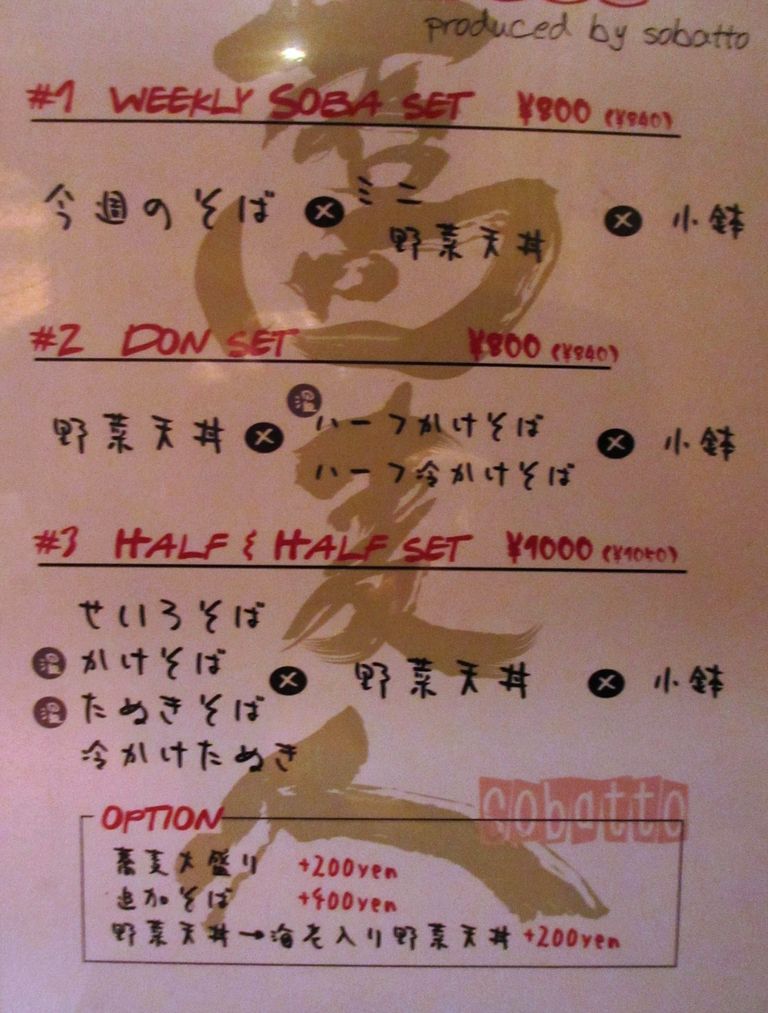 produced by sobatto
#1 WEEKLY SOBA SET ¥800 (¥840)
今週のそば × ミニ野菜天丼 × 小鉢
#2 DON SET ¥800 (¥840)
野菜天丼 × 温 ハーフかけそば × 小鉢
ハーフ冷かけそば
#3 HALF & HALF SET ¥1000 (¥1050)
せいろそば
温 かけそば × 野菜天丼 × 小鉢
温 たぬきそば
冷かけたぬき
sobatto
OPTION
蕎麦大盛り +200yen
追加そば +400yen
野菜天丼→海老入り野菜天丼 +200yen
蕎麦人